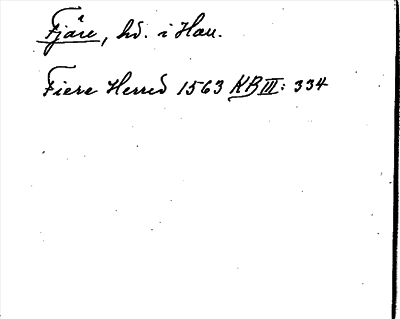 Fjäre, hd. i Hall.
Fiere Herred 1563 KB III: 334